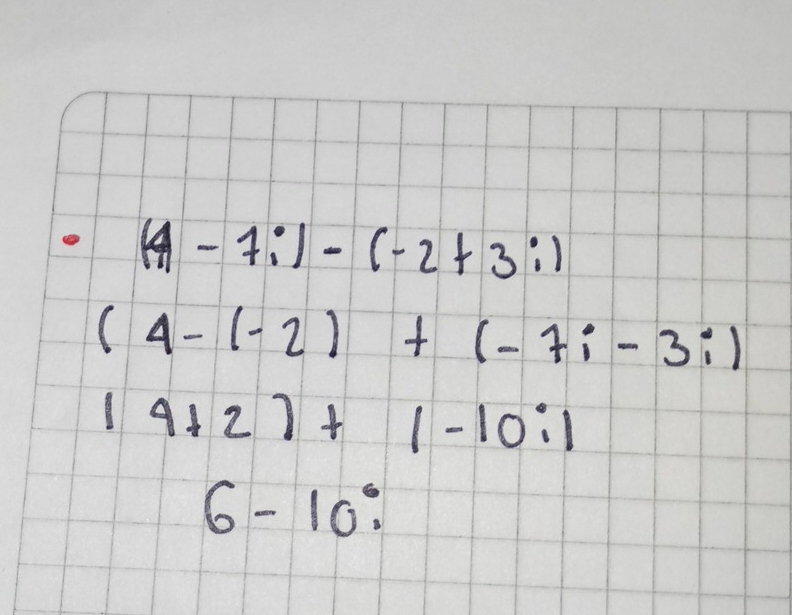 (4 - 7i) - (-2 + 3i)
( 4 - (-2) + (- 7i - 3i)
( 4 + 2 ) + ( - 10i)
6 - 10i